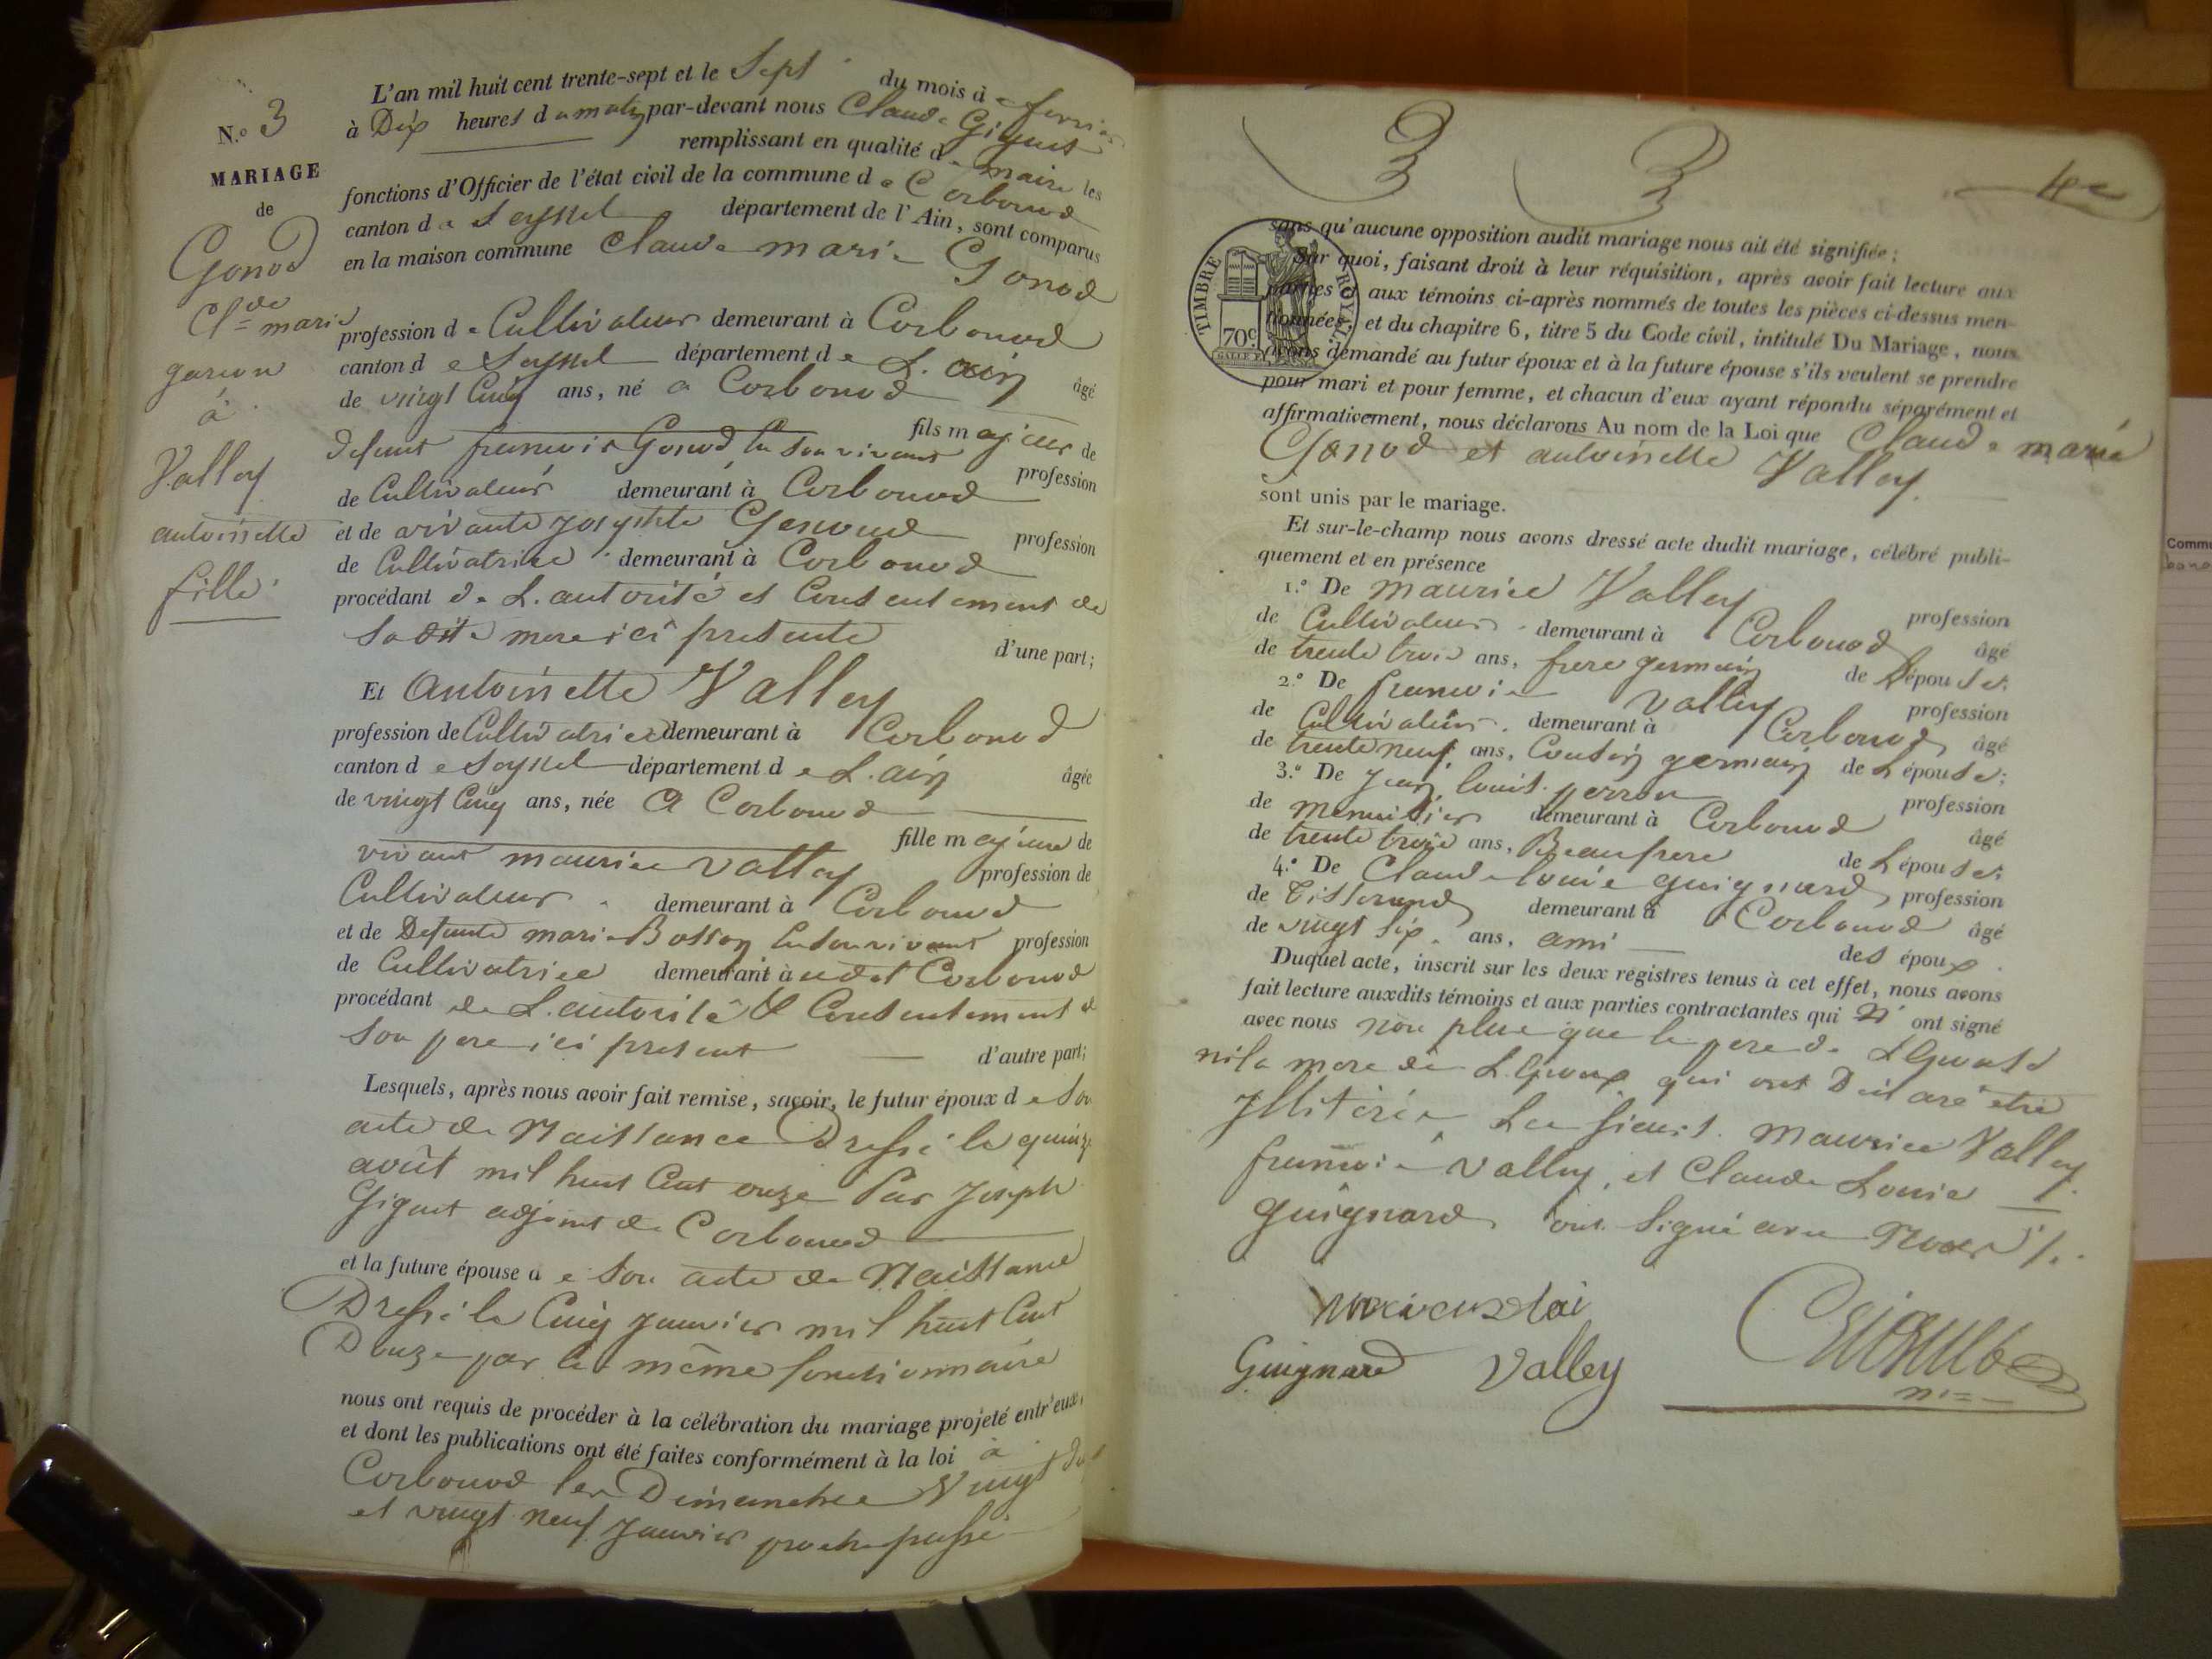 N.o 3
MARIAGE
de
Gonod
Cl.de marie
garcon
à
Valley
antoinette
fille
L'an mil huit cent trente-sept et le Sept du mois de fevrier
à Dix heures du matin par-devant nous Claude Giguet
remplissant en qualité de maire les
fonctions d'Officier de l'état civil de la commune de Corbonod
canton de Seyssel département de l'Ain, sont comparus
en la maison commune Claude marie Gonod
profession de Cultivateur demeurant à Corbonod
canton de Seyssel département de L'ain âgé
de vingt Cinq ans, né a Corbonod
fils majeur de
defunt francois Gonod En son vivant profession
de Cultivateur demeurant à Corbonod
et de vivante josephte Genoud profession
de Cultivatrice demeurant à Corbonod
procédant de L'autorité et Consentement de
sa dite mere ici presente d'une part;
Et Antoinette Valley
profession de Cultivatrice demeurant à Corbonod
canton de Seyssel département de L'ain âgée
de vingt Cinq ans, née a Corbonod
fille majeure de
vivant maurice Valley profession de
Cultivateur demeurant à Corbonod
et de Defunte marie Bosson En son vivant profession
de Cultivatrice demeurant à Corbonod
procédant de L'autorité & Consentement de
son pere ici present d'autre part;
Lesquels, après nous avoir fait remise, savoir, le futur époux de Son
acte de Naissance Dressé le quinze
août mil huit Cent onze Par Joseph
Giguet adjoint de Corbonod
et la future épouse de Son acte de Naissance
Dressé le Cinq janvier mil huit Cent
Douze par le même fonctionnaire
nous ont requis de procéder à la célébration du mariage projeté entr'eux,
et dont les publications ont été faites conformément à la loi à
Corbonod les Dimanches Vingt
et vingt neuf janvier proche passé
3 3
sans qu'aucune opposition audit mariage nous ait été signifiée;
Sur quoi, faisant droit à leur réquisition, après avoir fait lecture aux
parties et aux témoins ci-après nommés de toutes les pièces ci-dessus men-
tionnées, et du chapitre 6, titre 5 du Code civil, intitulé Du Mariage, nous
avons demandé au futur époux et à la future épouse s'ils veulent se prendre
pour mari et pour femme, et chacun d'eux ayant répondu séparément et
affirmativement, nous déclarons Au nom de la Loi que Claude marie
Gonod et antoinette Valley
sont unis par le mariage.
TIMBRE ROYAL.
70c.
Et sur-le-champ nous avons dressé acte dudit mariage, célébré publi-
quement et en présence
1.o De maurice Valley profession
de Cultivateur demeurant à Corbonod âgé
de trente trois ans, frere germain de Lépouse;
2.o De francois Valley profession
de Cultivateur demeurant à Corbonod âgé
de trente neuf ans, Cousin germain de Lépouse;
3.o De jean louis perron profession
de menuisier demeurant à Corbonod âgé
de trente trois ans, Beaufrere de Lépouse;
4.o De Claude louis guignard profession
de Tisserand demeurant à Corbonod âgé
de vingt six ans, ami des époux.
Duquel acte, inscrit sur les deux registres tenus à cet effet, nous avons
fait lecture auxdits témoins et aux parties contractantes qui n' ont signé
avec nous non plus que le pere de L'Epouse
ni la mere de L'Epoux qui ont Déclaré être
jlliterés Les sieurs maurice Valley
francois Valley, et Claude Louis
guignard ont signé avec Nous
Guignard Valley Giguet